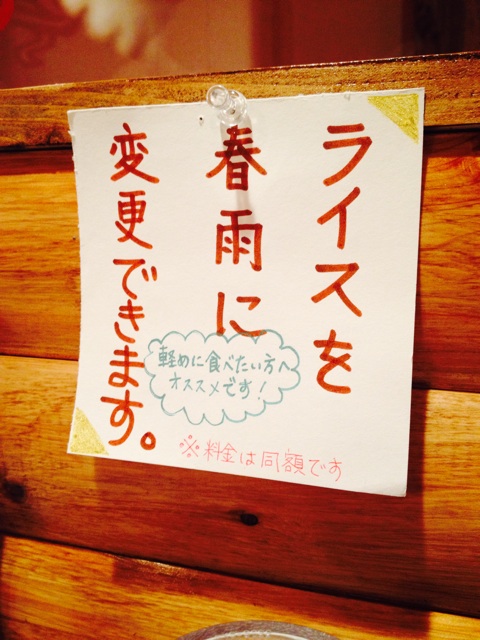 ライスを
春雨に
変更できます。
軽めに食べたい方へ
オススメです!
※料金は同額です